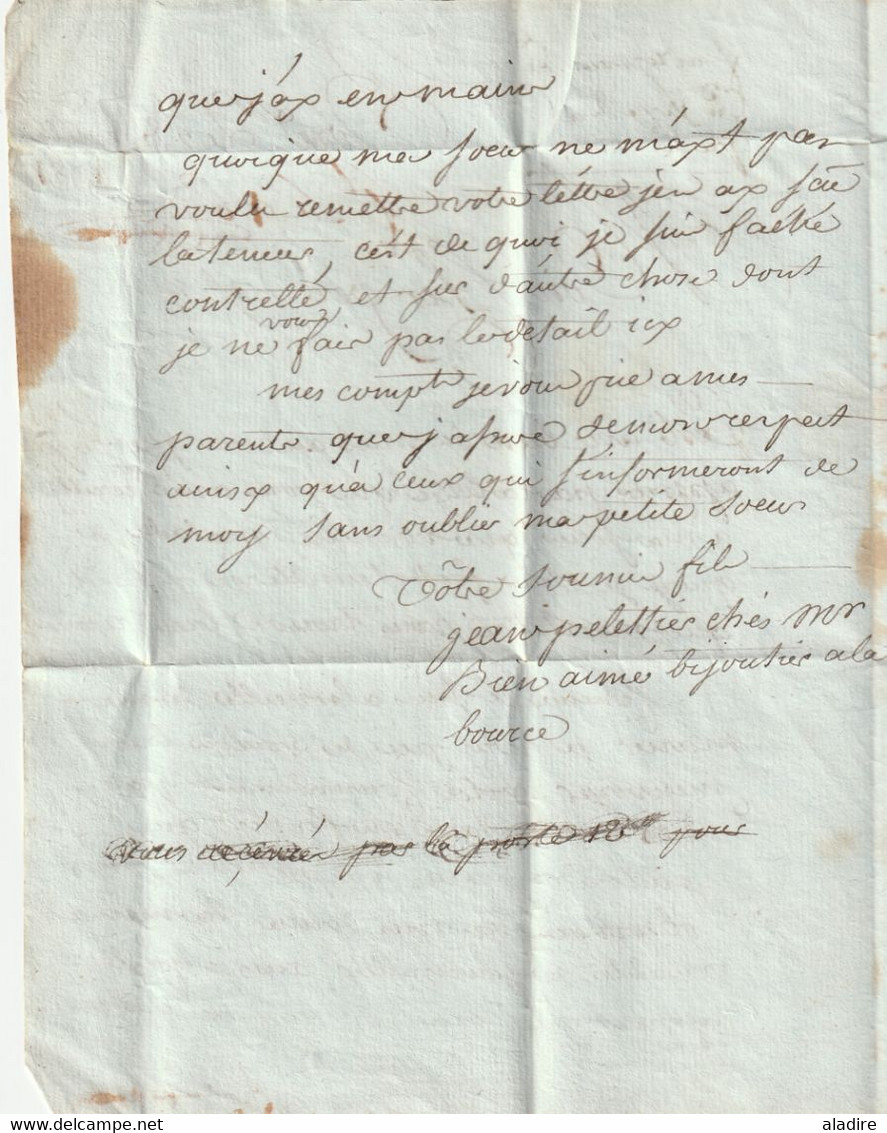 que j'ax en main
quoique ma soeur ne m'axt pas
voulu remettre votre lettre j'en ax sçu
la teneur, c'est de quoi je suis faché
contre elle, et sur d'autre chose dont
je ne vous fais pas le detail icx
mes compts je vous prie a mes
parents que j'assure de mon respect
ainsx qu'a ceux qui s'informeront de
moy sans oublier ma petite soeur
Vôtre soumis fils
jean pelettier chés Mr
Bien aimé bijoutier a la
bource
vous par la poste 18 pour
delcampe.net
aladire